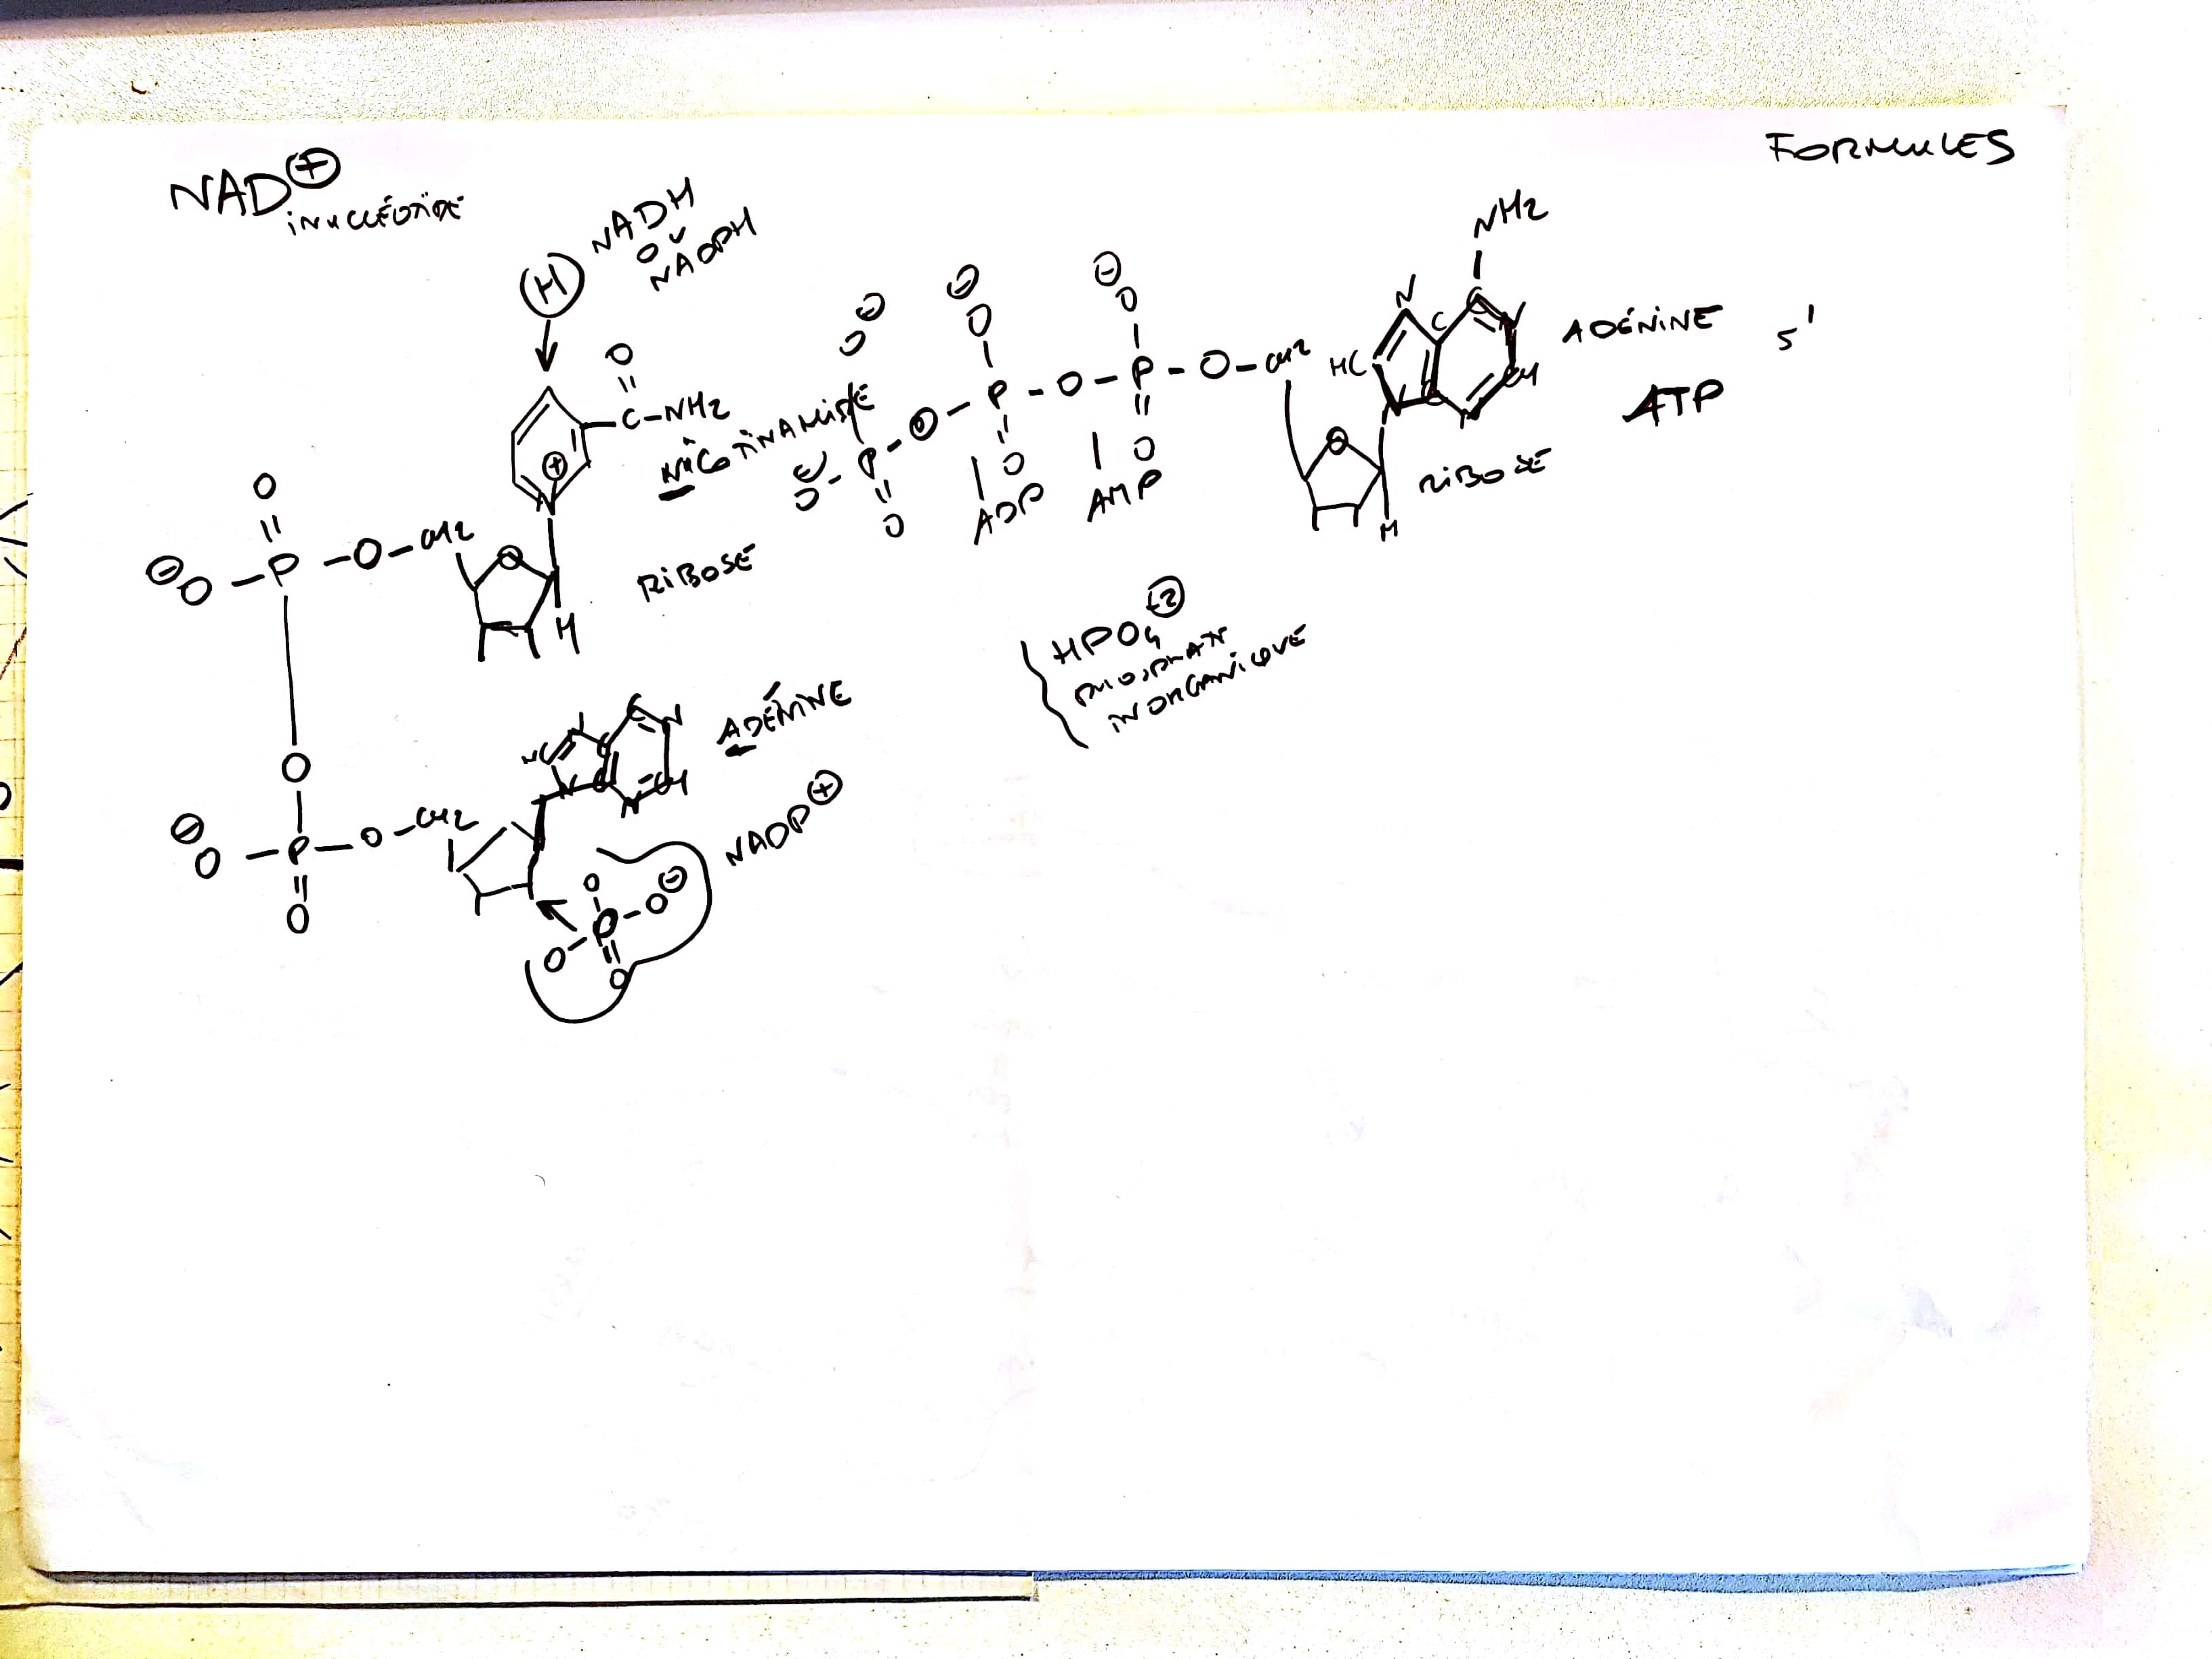 FORMULES
NAD⊕
iNUCLÉOTIDE
H
NADH
OU
NADPH
O
C-NH2
NICOTINAMIDE
⊕
N
O
⊖O-P-O-CH2
O
H
RIBOSE
O
⊖O-P-O-CH2
O
C N
HC N C
N C N CH
ADÉNINE
NADP⊕
O
P-O⊖
O
O
NH2
⊖ ⊖ ⊖
O O O
⊖O-P-O-P-O-P-O-CH2
O O O
ADP AMP
N C C N
HC N C N CH
ADÉNINE 5'
ATP
O
H
RIBOSE
HPO4 -2
PHOSPHAT
INORGANIQUE